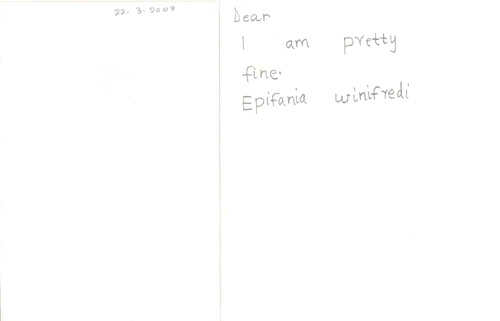 22. 3. 2009
Dear
I am pretty
fine.
Epifania winifredi